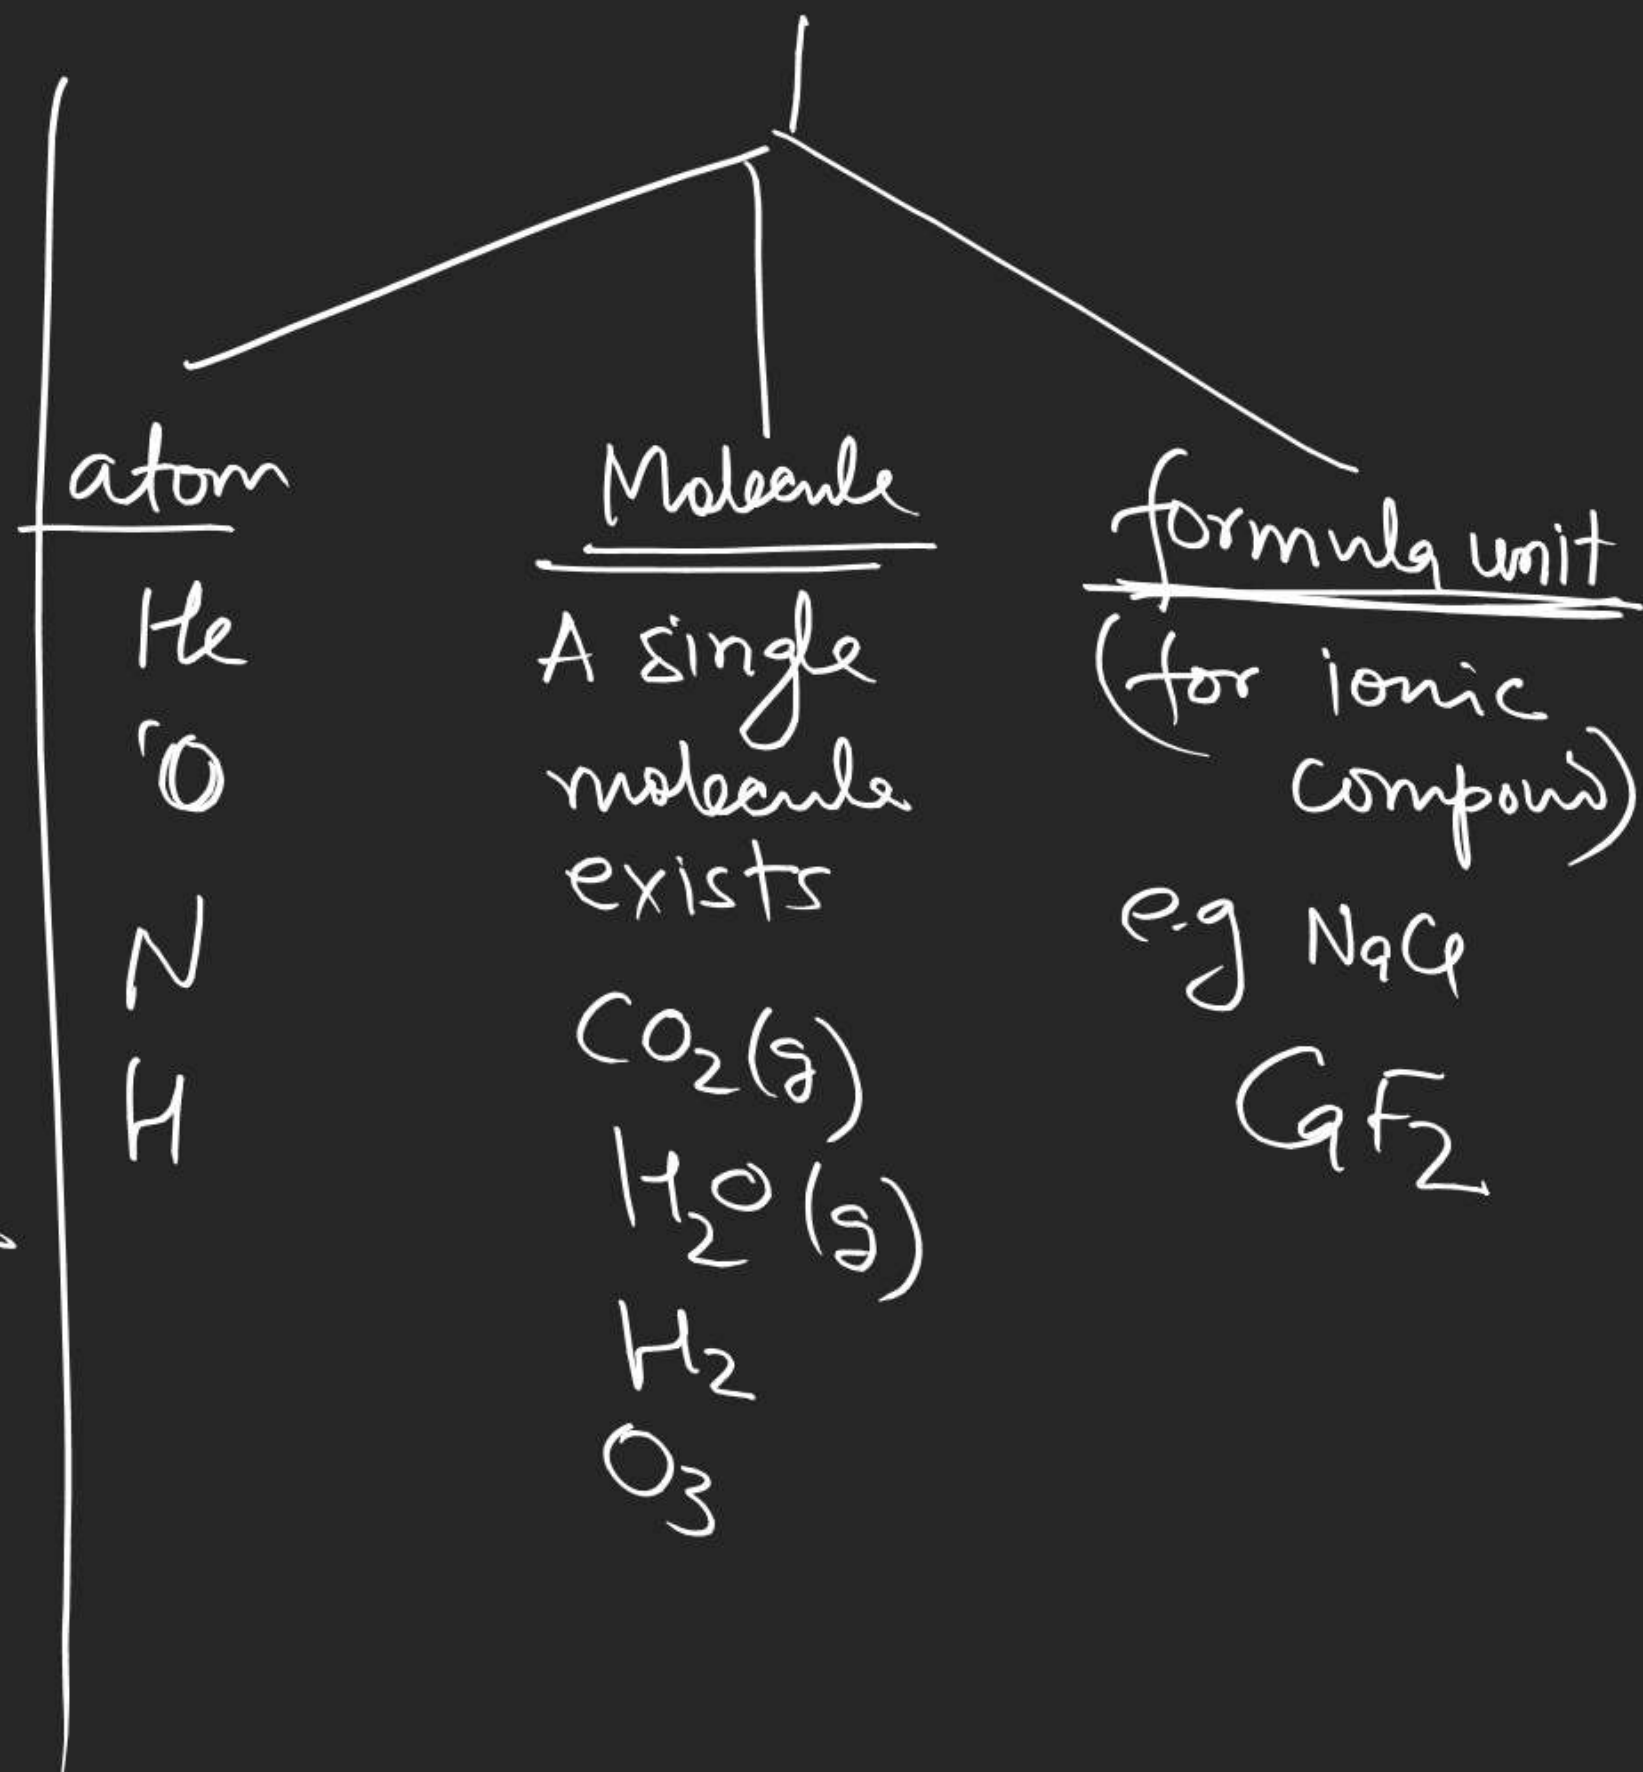 atom
He
O
N
H
Molecule
A single
molecule
exists
CO₂(g)
H₂O(g)
H₂
O₃
formula unit
(for ionic
compound)
e.g NaCl
CaF₂